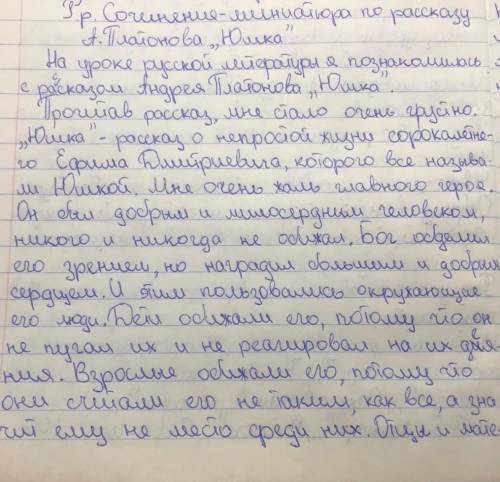 Рр. Сочинение-миниатюра по рассказу
А. Платонова „Юшка"
На уроке русской литературы я познакомилась
с рассказом Андрея Платонова „Юшка".
Прочитав рассказ, мне стало очень грустно.
„Юшка" - рассказ о непростой жизни сорокалетне-
го Ефима Дмитриевича, которого все называ-
ли Юшкой. Мне очень жаль главного героя.
Он был добрым и милосердним человеком,
никого и никогда не обижал. Бог обделил
его зрением, но наградил большим и добрым
сердцем. И этим пользовались окружающие
его люди. Дети обижали его, потому что он
не пугал их и не реагировал на их дея-
ния. Взрослые обижали его, потому что
они считали его не таким, как все, а зна
чит ему не место среди них. Отцы и мате-